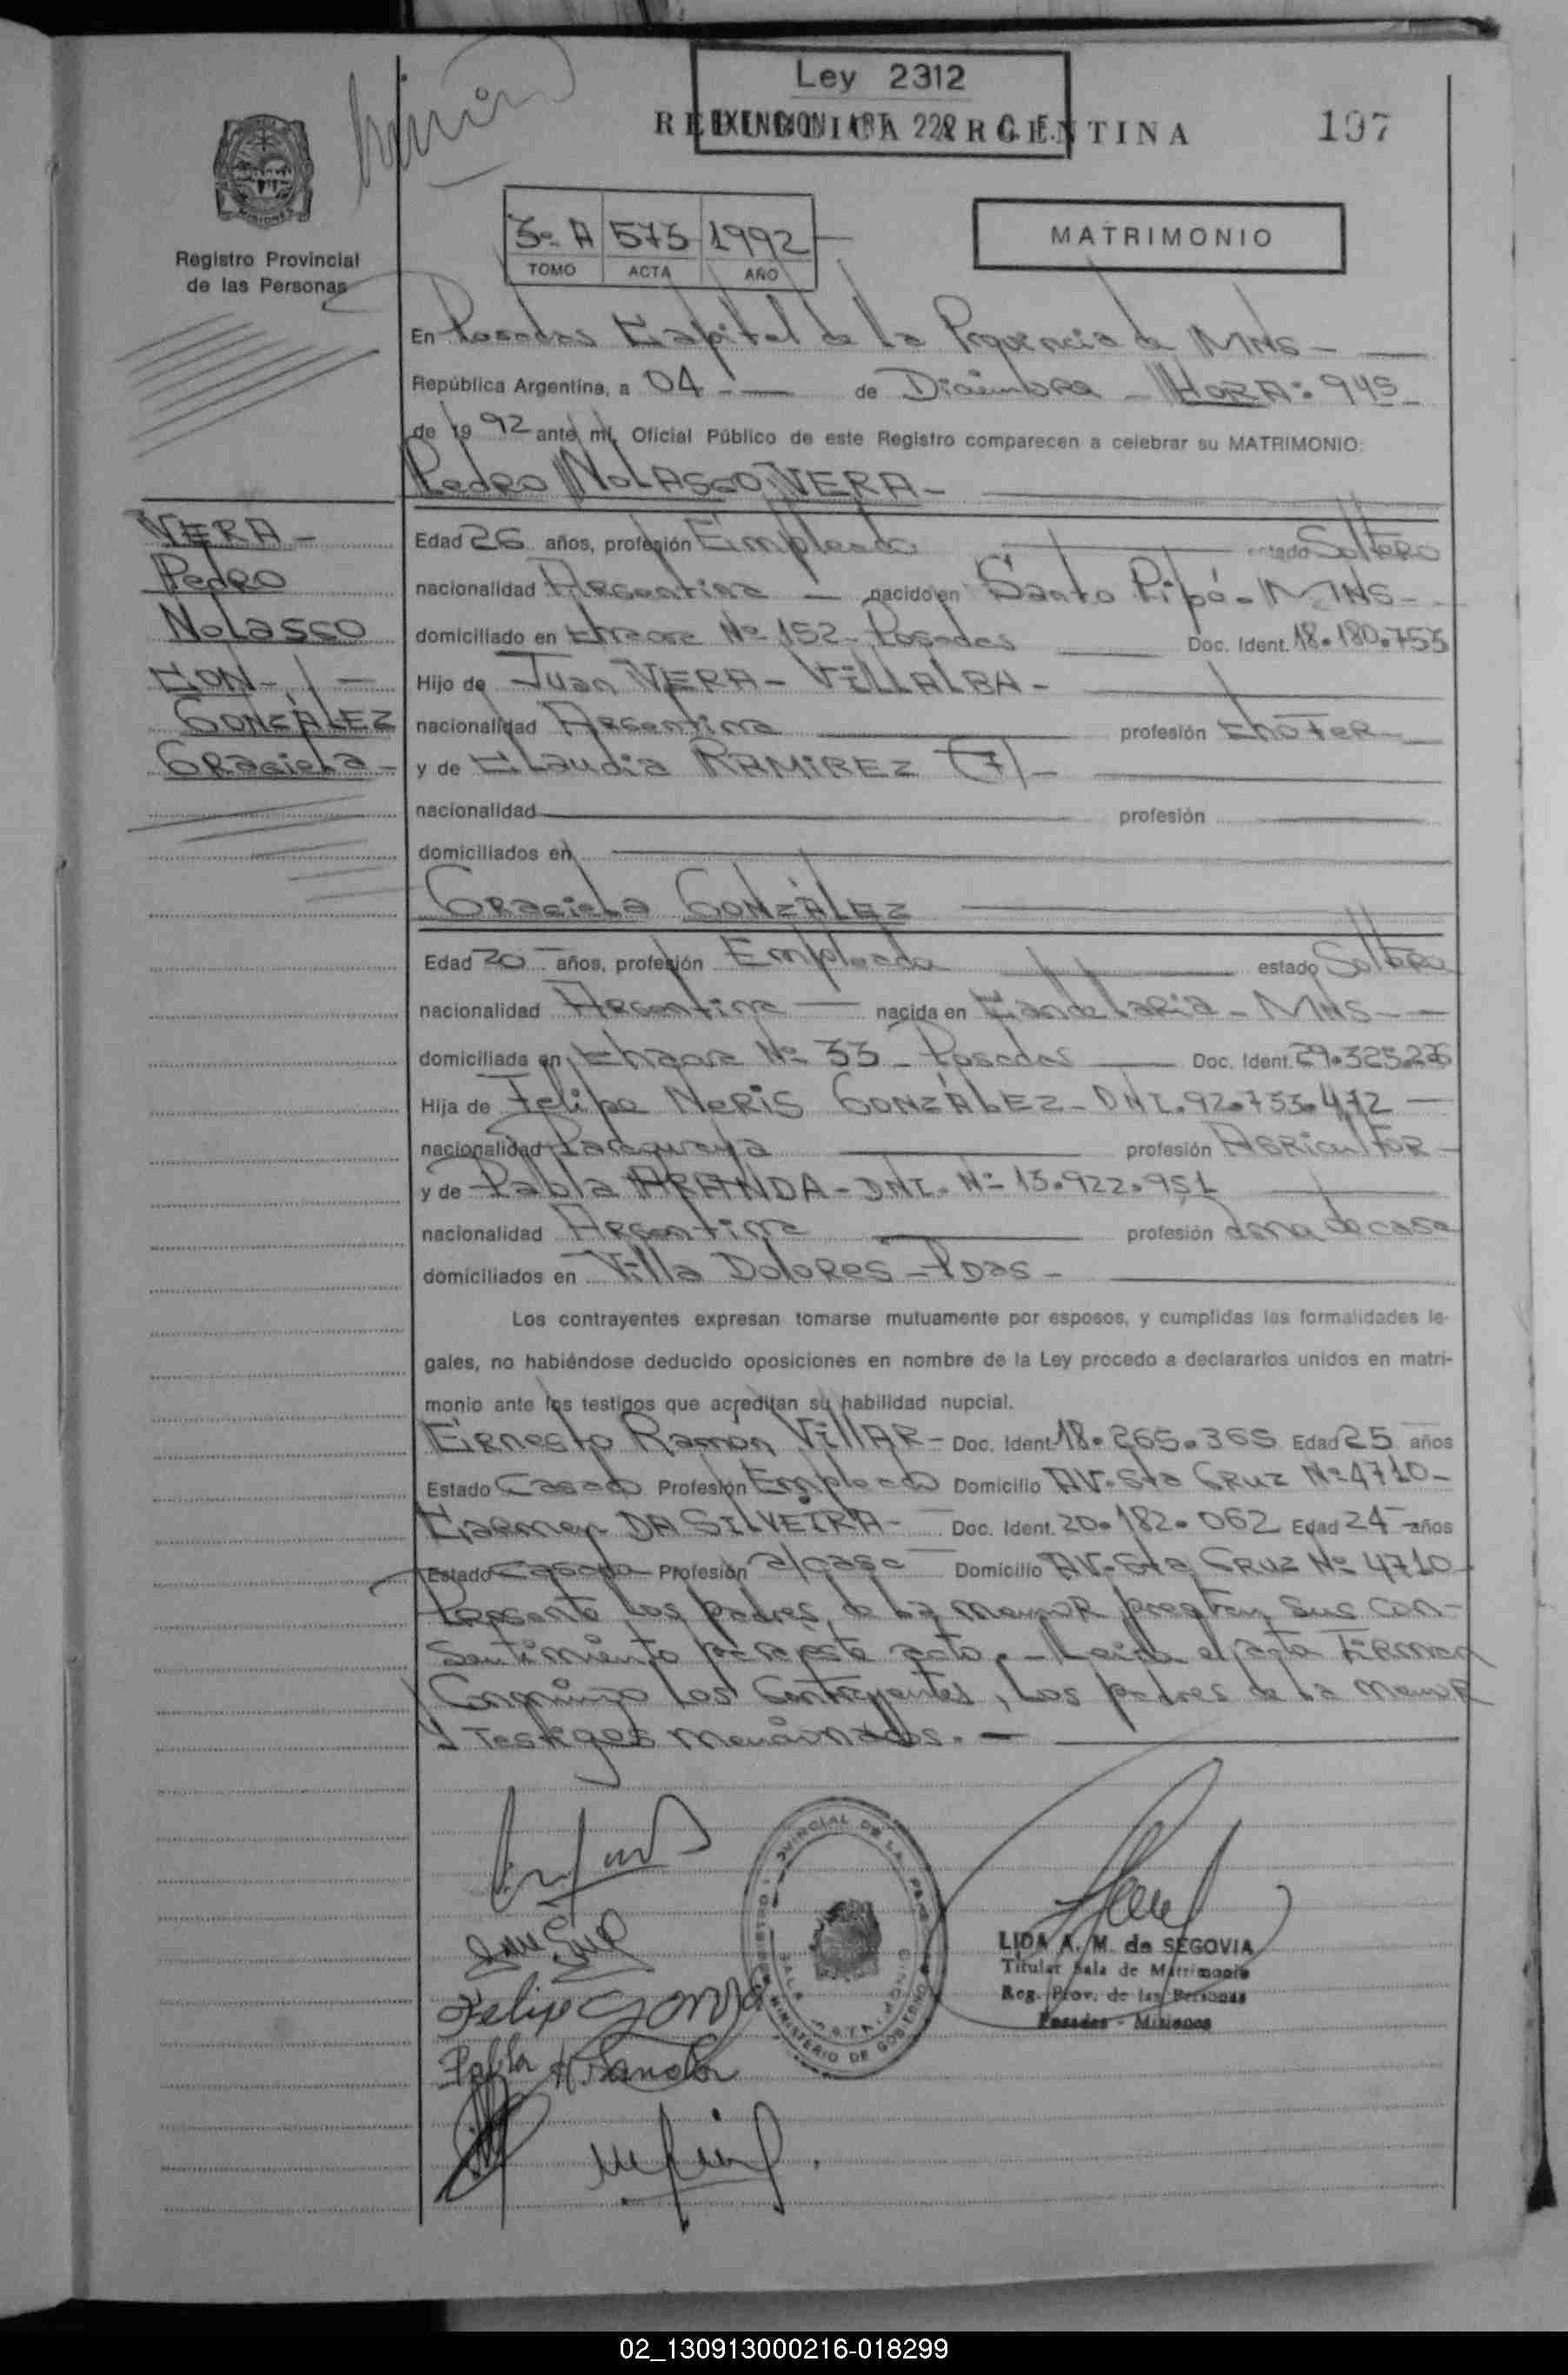 Ley 2312
REPUBLICA ARGENTINA
EXENCION ART. 222 C. F.
197
Registro Provincial
de las Personas
3º A 573 1992
TOMO ACTA AÑO
MATRIMONIO
En Posadas Capital de la Provincia de MNS -
República Argentina, a 04 - de Diciembre - HORA: 945 -
de 1992 ante mí, Oficial Público de este Registro comparecen a celebrar su MATRIMONIO:
Pedro NOLASCO VERA -
VERA -
Pedro
Nolasco
CON -
GONZÁLEZ
Graciela -
Edad 26 años, profesión Empleado estado Soltero
nacionalidad Argentina - nacido en Santo Pipó - MNS -
domiciliado en Chacra Nº 152 - Posadas Doc. Ident. 18.180.753
Hijo de Juan VERA - VILLALBA -
nacionalidad Argentina profesión Chofer -
y de Claudia RAMIREZ (F) -
nacionalidad profesión
domiciliados en
Graciela GONZÁLEZ
Edad 20 años, profesión Empleada estado Soltera
nacionalidad Argentina - nacida en Candelaria - MNS - -
domiciliada en Chacra Nº 33 - Posadas Doc. Ident. 29.323.226
Hija de Felipe Neris GONZÁLEZ - DNI. 92.733.472 -
nacionalidad Paraguaya profesión Agricultor -
y de Pabla ARANDA - DNI. Nº 13.922.951
nacionalidad Argentina profesión ama de casa
domiciliados en Villa Dolores - Pdas -
Los contrayentes expresan tomarse mutuamente por esposos, y cumplidas las formalidades le-
gales, no habiéndose deducido oposiciones en nombre de la Ley procedo a declararlos unidos en matri-
monio ante los testigos que acreditan su habilidad nupcial.
Ernesto Ramón VILLAR - Doc. Ident. 18.265.365 Edad 25 años
Estado Casado Profesión Empleado Domicilio AV. Sta Cruz Nº 4710 -
Carmen DA SILVEIRA - Doc. Ident. 20.182.062 Edad 24 años
Estado Casada Profesión a/casa Domicilio AV. Sta Cruz Nº 4710
Presente los padres de la menor prestan sus con-
sentimiento para este acto. - Leida el acta Firman
Conmigo los Contrayentes, los padres de la menor
y Testigos mencionados. -
Felipe Gonza
Pabla Aranda
MINISTERIO DE GOBIERNO
LIDA A. M. de SEGOVIA
Titular Sala de Matrimonio
Reg. Prov. de las Personas
Posadas - Misiones
02_130913000216-018299